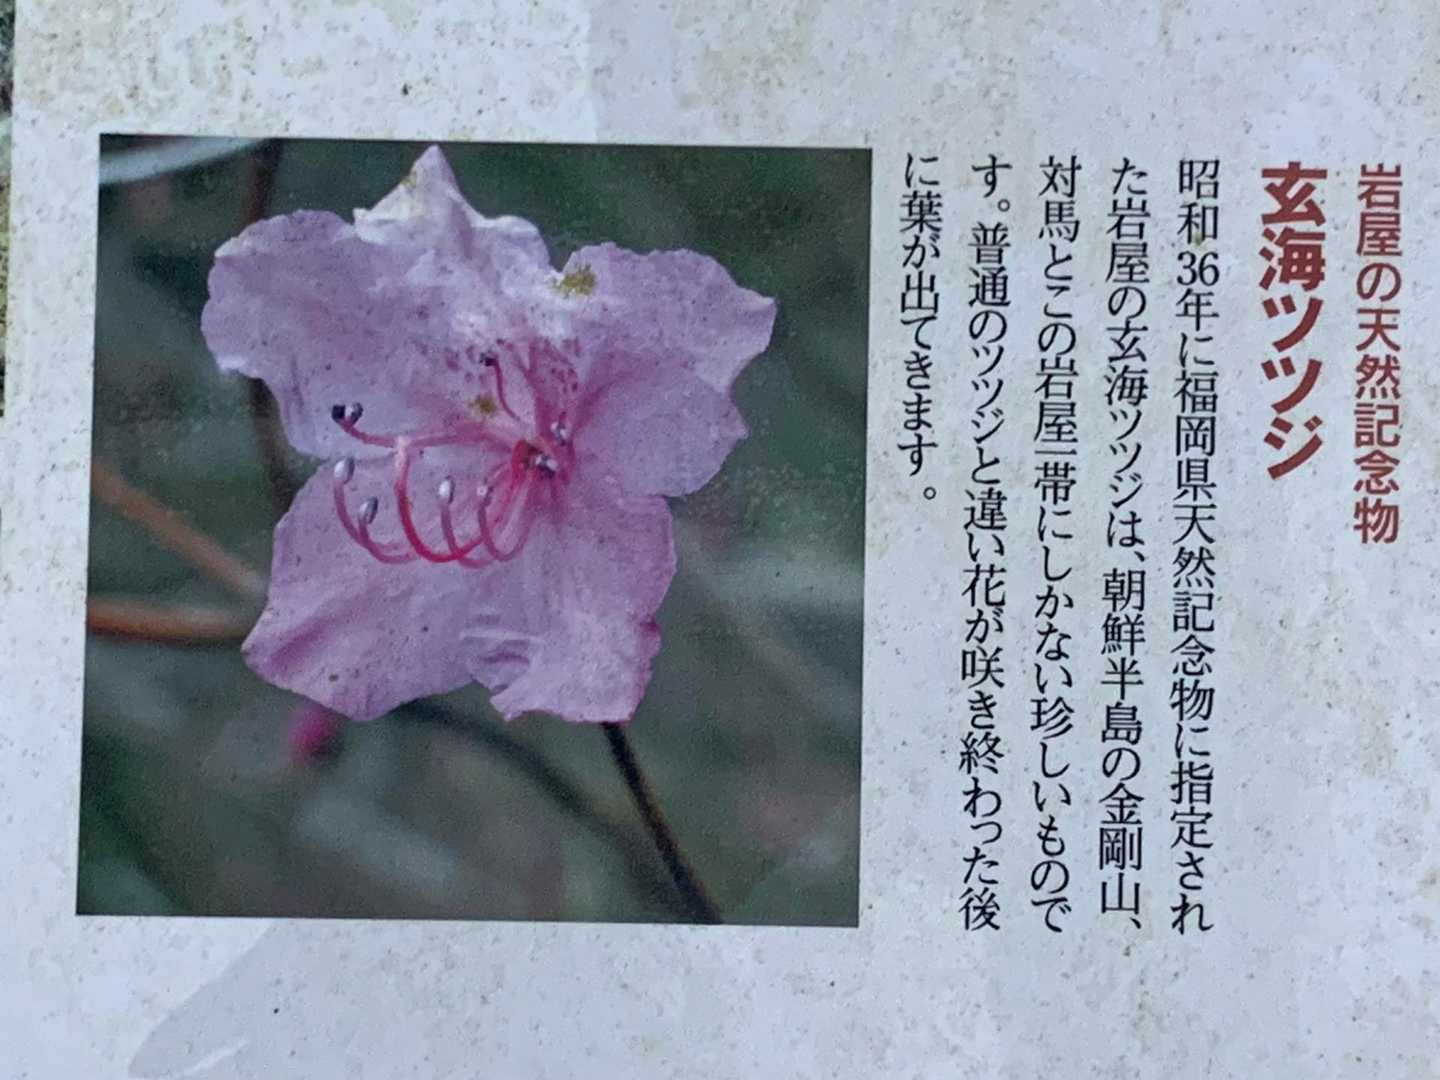 岩屋の天然記念物
玄海ツツジ
昭和36年に福岡県天然記念物に指定され
た岩屋の玄海ツツジは、朝鮮半島の金剛山、
対馬とこの岩屋一帯にしかない珍しいもので
す。普通のツツジと違い花が咲き終わった後
に葉が出てきます。